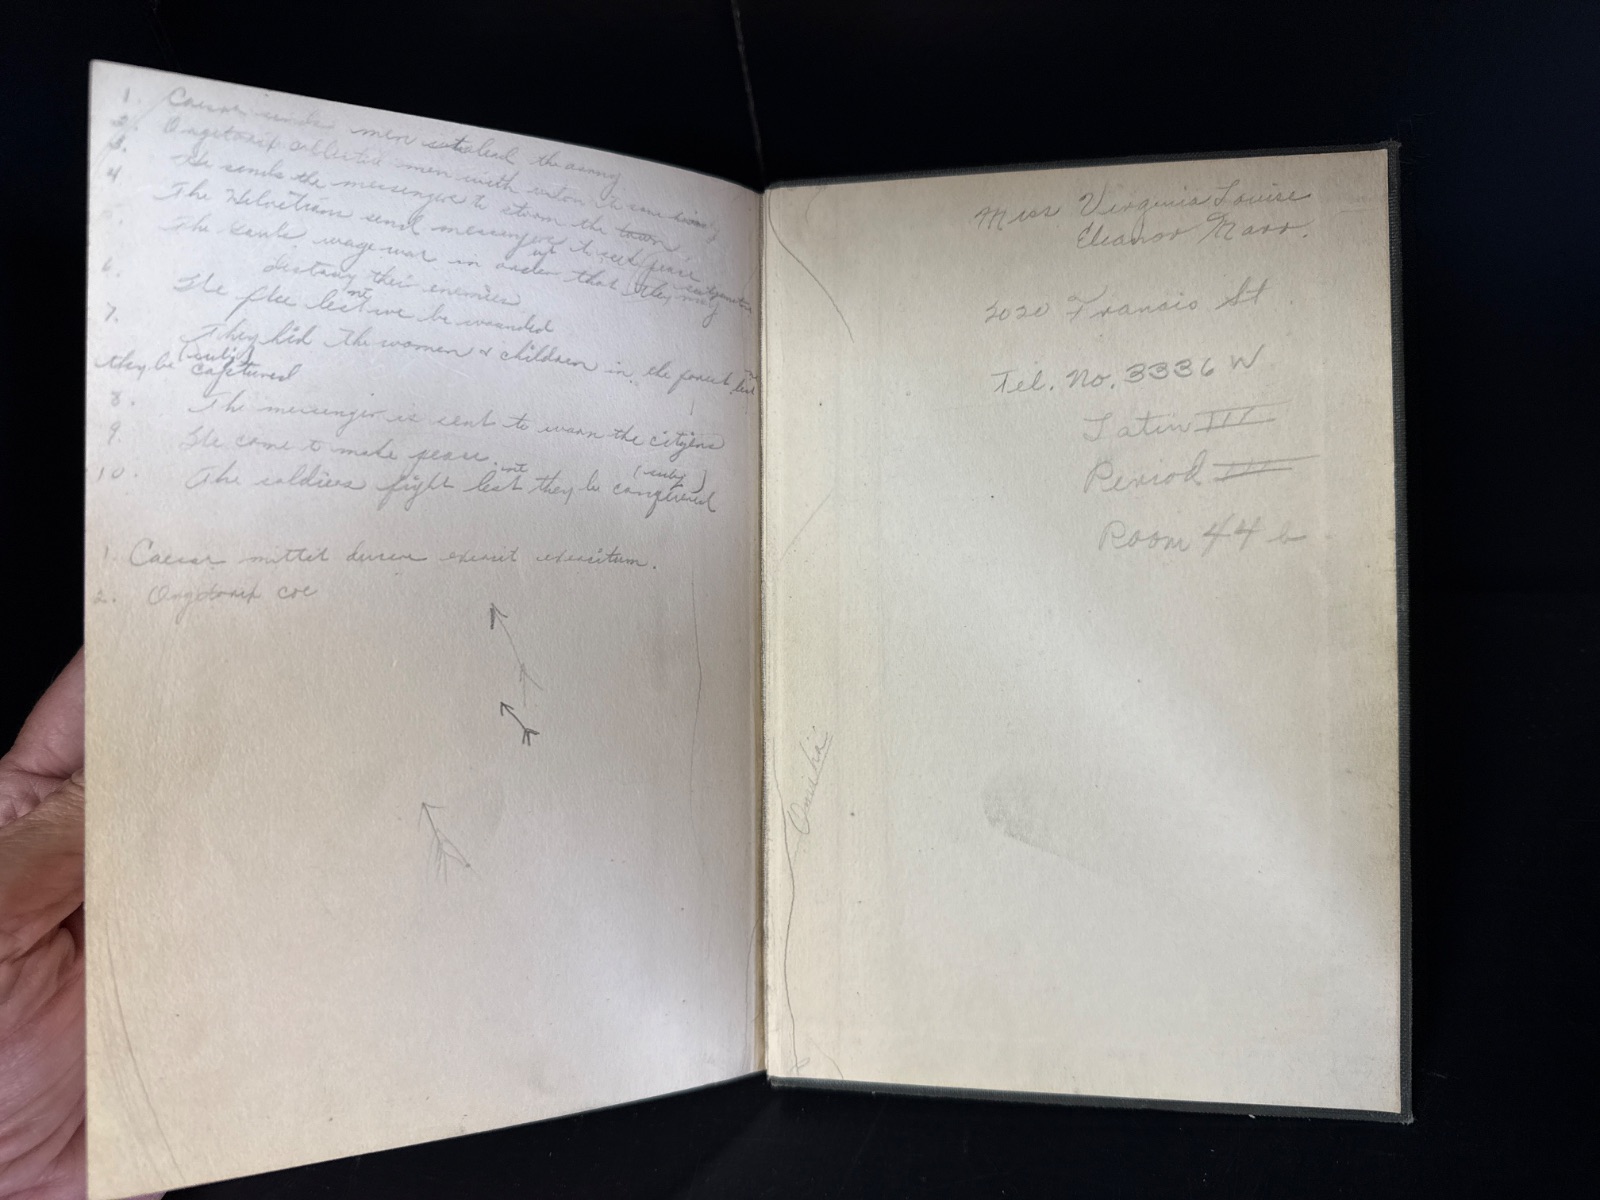 1. Caesar sends men to lead the army
2. Orgetorix collected men with whom to
3. He sends the messenger to storm the town
4 The Helvetians send messengers to seek peace
The Gauls wage war in order that they may
destroy their enemies
6. We flee lest we be wounded
7. They hid the women & children in the forest lest
they be (subj) captured
8. The messenger is sent to warn the citizens
9. He came to make peace.
10. The soldiers fight lest they be conquered
(subj)
1. Caesar mittet ducere exercit exercitum.
2. Orgetorix coe
Miss Virginia Louise
Eleanor Marr.
2020 Francis St.
Tel. No. 3336 W
Latin III
Period III
Room 44 b